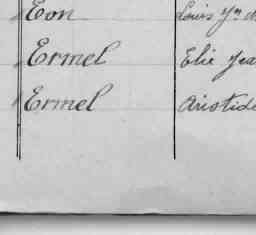 Eon Louis Yves
Ermel Elie Jea
Ermel Aristide